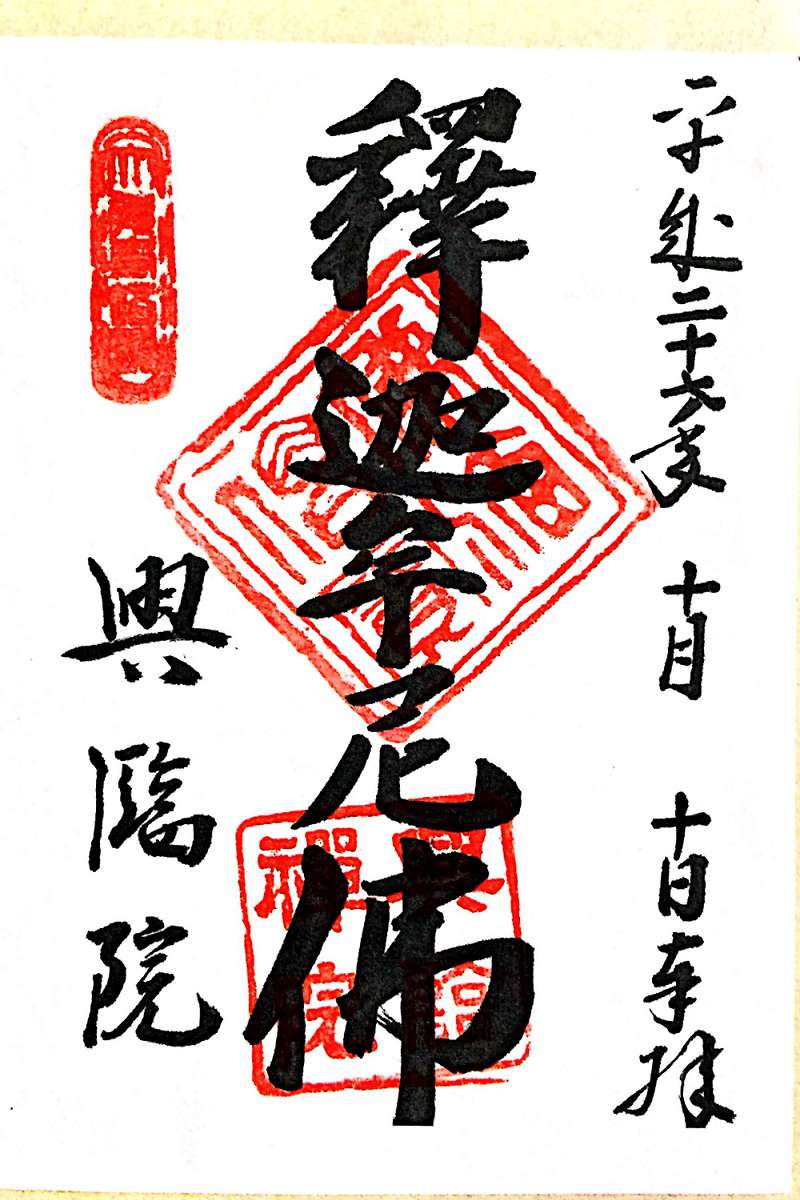 平成二十六年 十月 十日 奉拝
釋迦牟尼佛
興臨院
興臨
禪院